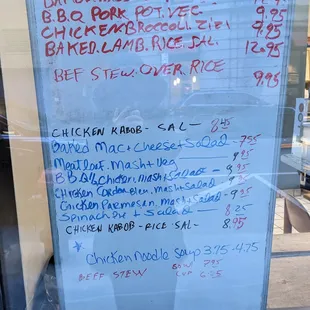 B.B.Q PORK POT. VEG 9.95
CHICKEN BROCCOLI ZIZI 9.95
BAKED. LAMB. RICE. SAL. 12.95
BEF STEW. OVER. RICE 9.95
CHICKEN KABOB - SAL - 8.45
Baked Mac + Cheese + Salad - 7.95
Meatloaf. Mash + Veg
B.B.Q Chicken. Mash + Salad - 9.95
Chicken Cordon Bleu. Mash + Salad
Chicken Parmesan. Mash + Salad - 9.95
Spinach Pie + Salad - 8.25
CHICKEN KABOB - RICE - SAL - 8.95
Chicken Noodle Soup 3.75 - 4.75
BEEF STEW BOW 7.95
CUP 6.95